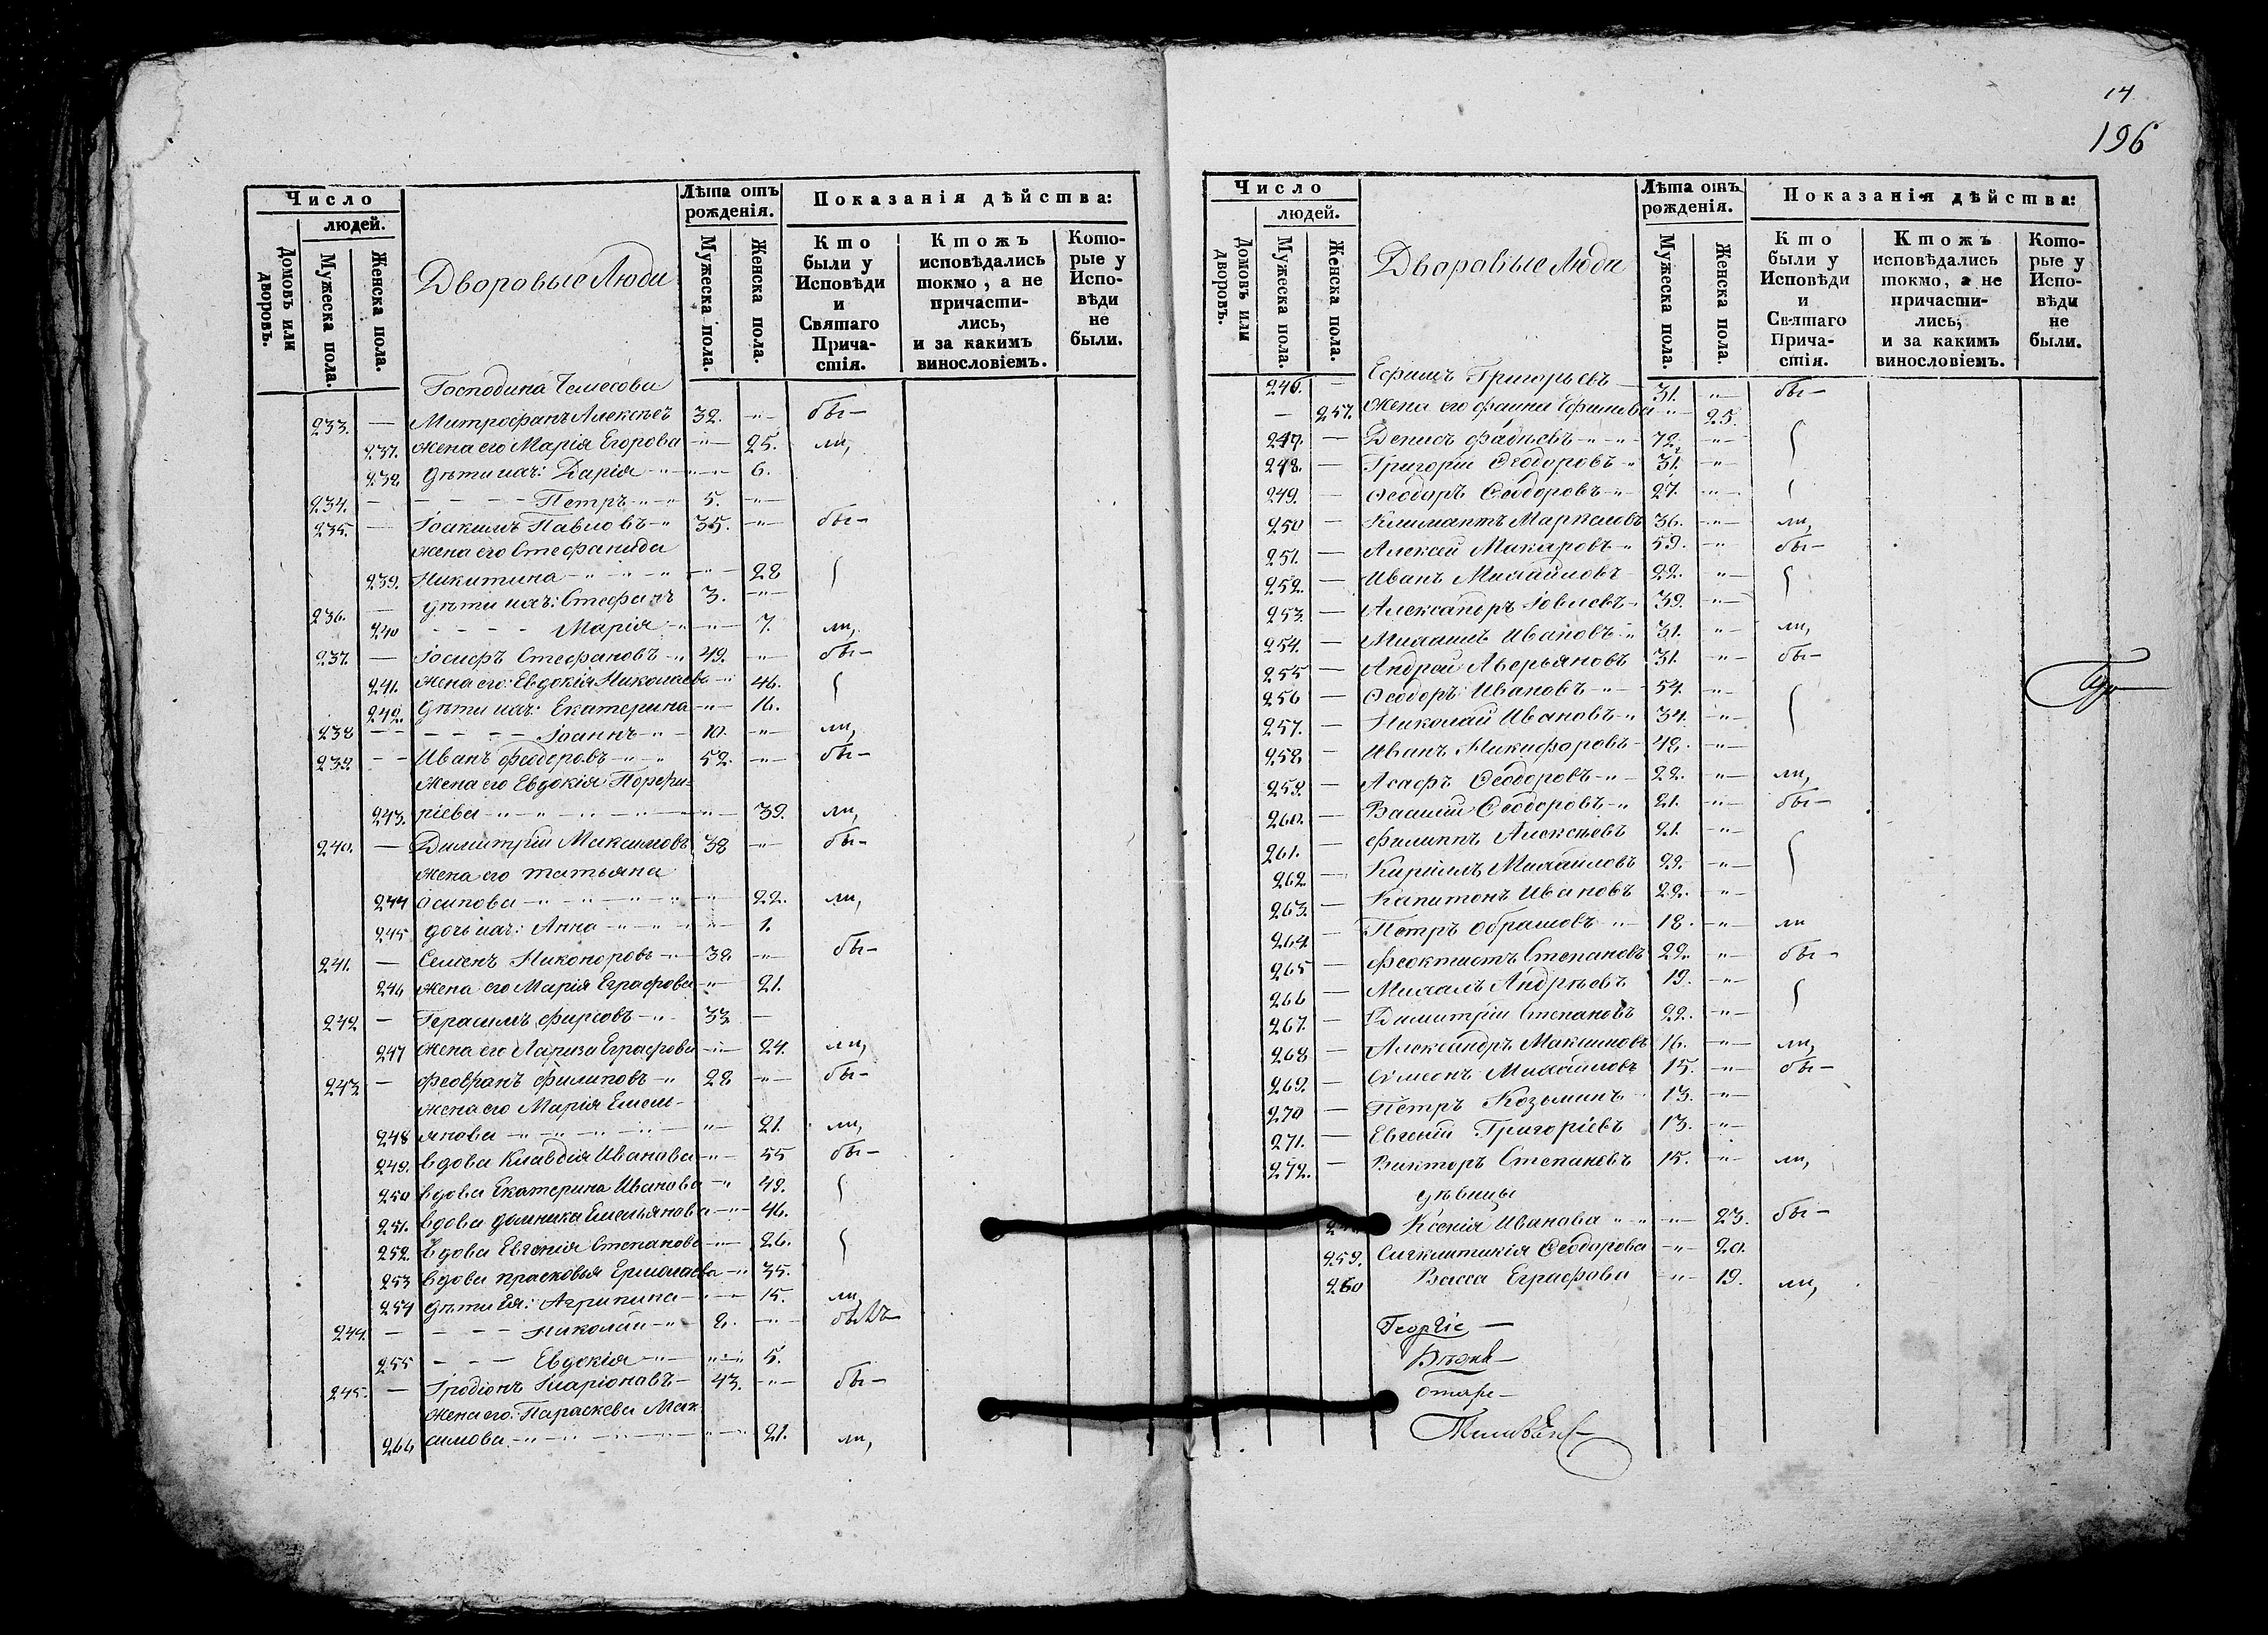 Число
людей.
Домовъ или дворовъ.
Мужеска пола.
Женска пола.
Дворовые Люди
Лѣта отъ рожденія.
Мужеска пола.
Женска пола.
Показанія дѣйства:
Кто были у Исповѣди и Святаго Прича-стія.
Ктожъ исповѣдались токмо, а не причасти-лись, и за какимъ винословіемъ.
Кото-рые у Испо-вѣди не были.
Господина Чемесова
233. — Митрофанъ Алексѣевъ 32. —„— бы—
237. жена его Марія Егорова —„— 25. ли,
238 дѣти ихъ: Дарія —„— 6.
234. — — — — Петръ —„— 5. —„—
235. — Іоакимъ Павловъ —„ 35. —„— бы—
жена его Стефанида
239. Никитина —„—„—„ —„— 28
236. — дѣти ихъ: Стефанъ 3. —„—
240 — — — — Марія —„— 7. ли,
237. — Іосифъ Стефановъ —„ 49. —„— бы—
241. жена его: Евдокія Николаева —„ 46.
242. дѣти ихъ: Екатерина —„— 16.
238 — — — — — Іоаннъ —„— 10. —„— ли,
239 — — Иванъ Феодоровъ —„—„ 52. —„— бы—
жена его Евдокія Порфи-
243. ріева —„—„—„—„—„— 39. ли,
240. — Димитрій Максимовъ 38 —„— бы—
жена его татьяна
244 осипова —„—„—„—„ —„— 22. ли,
245 дочь ихъ: Анна —„—„ —„— 1.
241. — Семенъ Никоноровъ —„— 38 —„— бы—
246 жена его Марія Евграфова —„— 21.
242 — Герасимъ Фирсовъ —„— 33 —
247 жена его Лариса Евграфова —„— 24. ли,
243 — Феофанъ Филиповъ —„ 28 —„— бы—
жена его Марія Емель-
248 янова —„—„—„—„— —„— 21. ли,
249. вдова Клавдія Иванова —„— 55 бы—
250 вдова Екатерина Иванова —„ 49.
251. вдова домника Емельянова —„— 46.
252. вдова Евгенія Степанова —„— 26.
253 вдова прасковья Ермолаева —„ 35.
254 дѣти Ея: Агрипина —„— 15. ли,
244. — — — — Николай —„ 2. —„— былъ
255 — — — Евдокія —„— „—„ 5.
245. — Іродіонъ Иларіоновъ — 43. —„— бы—
жена его: Параскева Мак-
266 симова. —„—„—„—„—„ 21. ли,
14
196
Число
людей.
Домовъ или дворовъ.
Мужеска пола.
Женска пола.
Дворовые Люди
Лѣта отъ рожденія.
Мужеска пола.
Женска пола.
Показанія дѣйства:
Кто были у Исповѣди и Святаго Прича-стія.
Ктожъ исповѣдались токмо, а не причасти-лись, и за какимъ винословіемъ.
Кото-рые у Испо-вѣди не были.
246. — Ефимъ Григорьевъ — 31. —„— бы—
— 257. жена его фаина Ефимова —„— 25.
247. — Денисъ Фадѣевъ —„—„— 72. —„—
248. — Григорій Ѳеодоровъ —„ 31. —„—
249. — Ѳеодоръ Ѳеодоровъ —„ 27. —„—
250 — Климантъ Маркаловъ 36. —„— ли,
251. — Алексей Макаровъ —„ 59. —„ бы—
252. — Иванъ Михайловъ — 22. „—
253. — Александръ Іовлевъ —„ 39. —„—
254. — Михаилъ Ивановъ —„ 31. —„— ли,
255 — Андрей Аверьяновъ 31. —„— бы—
256 — Ѳеодоръ Ивановъ —„— 54. —„—
257. — Николай Ивановъ —„ 34. —„—
258 — Иванъ Никифоровъ — 48. —„—
259. — Асафъ Ѳеодоровъ —„— 22. „— ли,
260. — Василій Ѳеодоровъ —„ 21. —„— бы—
261. — Филиппъ Алексѣевъ 21. —„—
262 — Кирилъ Михайловъ 22. —„—
263. — Капитонъ Ивановъ 22. —„—
264 — Петръ Обрамовъ —„— 18. —„— ли
265 — Феоктистъ Степановъ 22. „— бы—
266 — Михаилъ Андрѣевъ 19. —„—
267. — Димитрій Степановъ 22. —„—
268 — Александръ Максимовъ 16. —„— ли,
269. — Сѵмеонъ Михайловъ 15. —„— бы—
270 — Петръ Козьминъ — 13. —„—
271. — Евгеній Григоріевъ 13. „—
272. — Викторъ Степановъ 15. —„— ли,
дѣвицы
Ксенія Иванова —„—„ —„— 23. бы—
259. Сигклитикія Ѳеодорова —„— 20.
260 Васса Евграфова —„— 19. ли,
Георгіе—